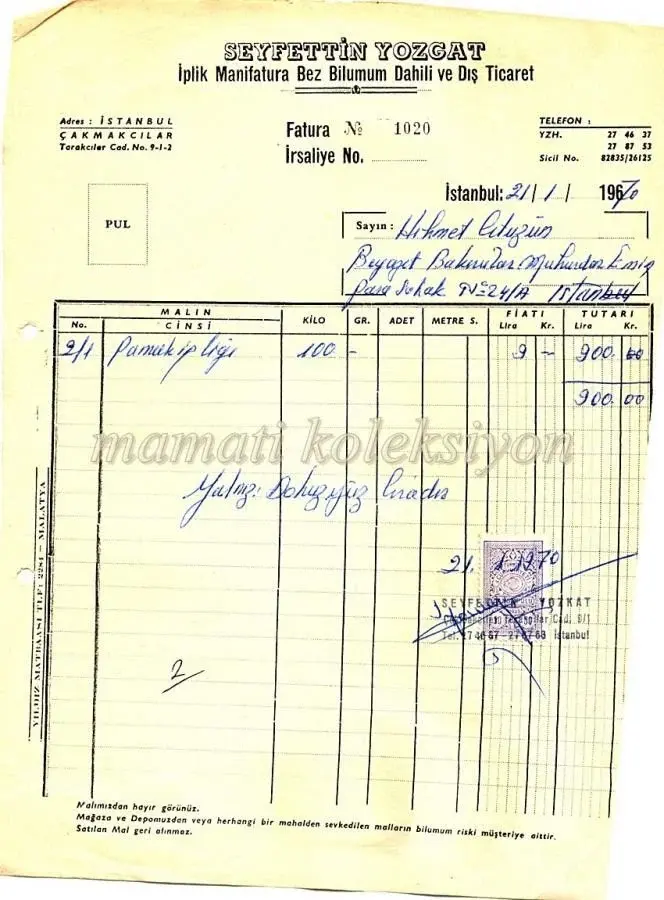 SEYFETTİN YOZGAT
İplik Manifatura Bez Bilumum Dahili ve Dış Ticaret
Adres : İSTANBUL
ÇAKMAKCILAR
Tarakcılar Cad. No. 9-1-2
Fatura № 1020
İrsaliye No.
TELEFON :
YZH. 27 46 37
27 87 53
Sicil No. 82835/26125
PUL
İstanbul: 21/1/1970
Sayın : Hikmet
Beyazıt Bakırcılar Mühürdar Emin
Paşa Sokak № 24/A İstanbul
MALIN
No. CİNSİ KİLO GR. ADET METRE S. FİATI Lira Kr. TUTARI Lira Kr.
2/1 Pamuk ipliği 100 - 9 - 900. 00
900. 00
mamati koleksiyon
Yalnız: Dokuzyüz liradır
21.1.1970
SEYFETTİN YOZKAT
Cad. 9/1
Tel. İstanbul
2
YILDIZ MATBAASI TLF: 2284 — MALATYA
Malımızdan hayır görünüz.
Mağaza ve Depomuzdan veya herhangi bir mahalden sevkedilen malların bilumum riski müşteriye aittir.
Satılan Mal geri alınmaz.